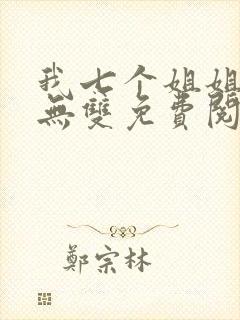 我七个姐姐
無雙免費閱
鄭宗林